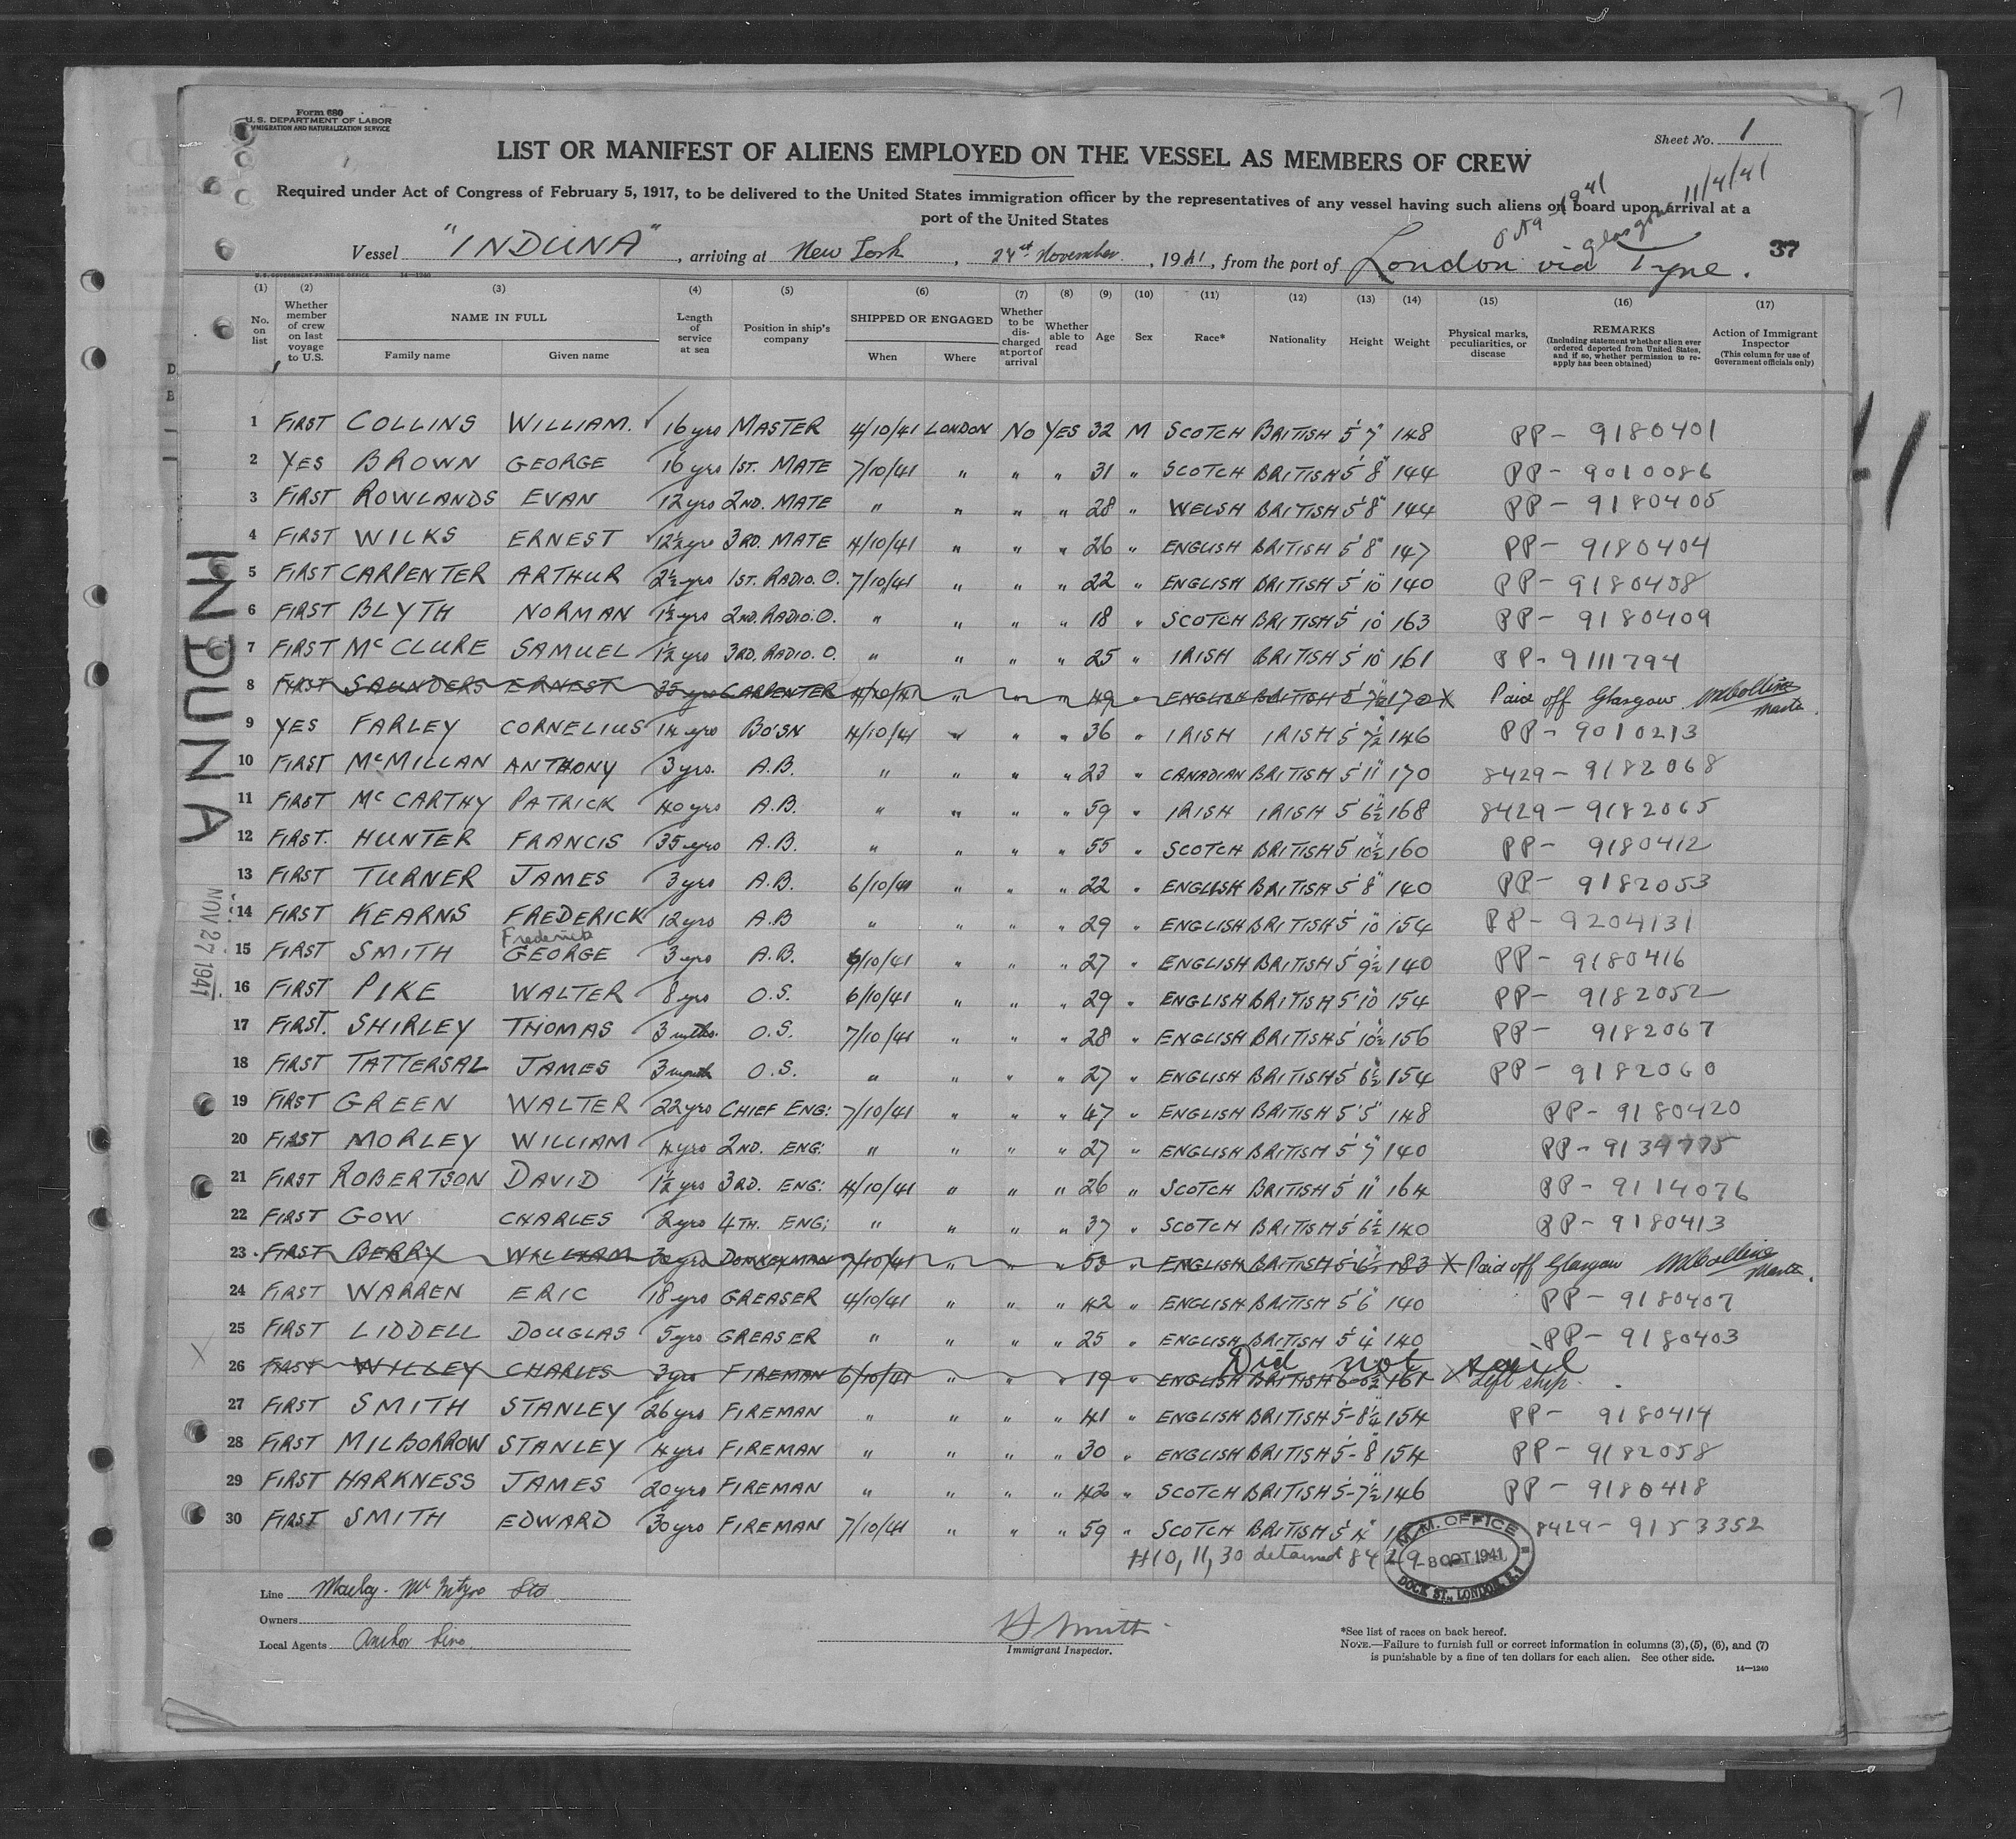 Form 680
U.S. DEPARTMENT OF LABOR
IMMIGRATION AND NATURALIZATION SERVICE
Sheet No. 1
LIST OR MANIFEST OF ALIENS EMPLOYED ON THE VESSEL AS MEMBERS OF CREW
11/4/41
Required under Act of Congress of February 5, 1917, to be delivered to the United States immigration officer by the representatives of any vessel having such aliens on board upon arrival at a
port of the United States
Vessel "INDUNA", arriving at New York, 27st November, 1941, from the port of London via Glasgow Tyne. 37
U.S. GOVERNMENT PRINTING OFFICE 14-1240
(1) (2) (3) (4) (5) (6) (7) (8) (9) (10) (11) (12) (13) (14) (15) (16) (17)
No. on list
Whether member of crew on last voyage to U.S.
NAME IN FULL
Family name Given name
Length of service at sea
Position in ship's company
SHIPPED OR ENGAGED
When Where
Whether to be discharged at port of arrival
Whether able to read
Age Sex Race* Nationality Height Weight
Physical marks, peculiarities, or disease
REMARKS
(Including statement whether alien ever ordered deported from United States, and if so, whether permission to reapply has been obtained)
Action of Immigrant Inspector
(This column for use of Government officials only)
1 FIRST COLLINS WILLIAM. 16 yrs MASTER 4/10/41 LONDON NO YES 32 M SCOTCH BRITISH 5'7" 148 PP- 9180401
2 YES BROWN GEORGE 16 yrs 1ST. MATE 7/10/41 " " " 31 " SCOTCH BRITISH 5'8" 144 PP- 9010086
3 FIRST ROWLANDS EVAN 12 yrs 2ND. MATE " " " " 28 " WELSH BRITISH 5'8" 144 PP- 9180405
4 FIRST WILKS ERNEST 12½ yrs 3RD. MATE 4/10/41 " " " 26 " ENGLISH BRITISH 5'8" 147 PP- 9180404
5 FIRST CARPENTER ARTHUR 2½ yrs 1ST. RADIO. O. 7/10/41 " " " 22 " ENGLISH BRITISH 5'10" 140 PP- 9180408
6 FIRST BLYTH NORMAN 1½ yrs 2ND. RADIO. O. " " " " 18 " SCOTCH BRITISH 5'10" 163 PP- 9180409
7 FIRST McCLURE SAMUEL 1½ yrs 3RD. RADIO. O. " " " " 25 " IRISH BRITISH 5'10" 161 PP- 9111794
8 FIRST SAUNDERS ERNEST 35 yrs CARPENTER 4/10/41 " " " 49 " ENGLISH BRITISH 5'7½" 170 X Paid off Glasgow WCollins Master.
9 YES FARLEY CORNELIUS 14 yrs BO'SN 4/10/41 " " " 36 " IRISH IRISH 5'7½" 146 PP- 9010213
10 FIRST McMILLAN ANTHONY 3 yrs. A.B. " " " " 23 " CANADIAN BRITISH 5'11" 170 8429- 9182068
11 FIRST McCARTHY PATRICK 40 yrs A.B. " " " " 59 " IRISH IRISH 5'6½" 168 8429- 9182065
12 FIRST. HUNTER FRANCIS 35 yrs A.B. " " " " 55 " SCOTCH BRITISH 5'10½" 160 PP- 9180412
13 FIRST TURNER JAMES 3 yrs A.B. 6/10/41 " " " 22 " ENGLISH BRITISH 5'8" 140 PP- 9182053
14 FIRST KEARNS FREDERICK 12 yrs A.B " " " " 29 " ENGLISH BRITISH 5'10" 154 PP- 9204131
Frederick
15 FIRST SMITH GEORGE 3 yrs A.B. 6/10/41 " " " 27 " ENGLISH BRITISH 5'9½" 140 PP- 9180416
16 FIRST PIKE WALTER 8 yrs O.S. 6/10/41 " " " 29 " ENGLISH BRITISH 5'10" 154 PP- 9182052
17 FIRST. SHIRLEY THOMAS 3 mths. O.S. 7/10/41 " " " 28 " ENGLISH BRITISH 5'10½" 156 PP- 9182067
18 FIRST TATTERSAL JAMES 3 month O.S. " " " " 27 " ENGLISH BRITISH 5'6½" 154 PP- 9182060
19 FIRST GREEN WALTER 22 yrs CHIEF ENG: 7/10/41 " " " 47 " ENGLISH BRITISH 5'5" 148 PP- 9180420
20 FIRST MORLEY WILLIAM 4 yrs 2ND. ENG: " " " " 27 " ENGLISH BRITISH 5'7" 140 PP- 9139775
21 FIRST ROBERTSON DAVID 1½ yrs 3RD. ENG: 4/10/41 " " " 26 " SCOTCH BRITISH 5'11" 164 PP- 9114076
22 FIRST GOW CHARLES 2 yrs 4TH. ENG: " " " " 37 " SCOTCH BRITISH 5'6½" 140 PP- 9180413
23 FIRST BERRY WILLIAM 30 yrs DONKEYMAN 7/10/41 " " " 53 " ENGLISH BRITISH 5'6½" 183 X Paid off Glasgow WCollins Master.
24 FIRST WARREN ERIC 18 yrs GREASER 4/10/41 " " " 42 " ENGLISH BRITISH 5'6" 140 PP- 9180407
25 FIRST LIDDELL DOUGLAS 5 yrs GREASER " " " " 25 " ENGLISH BRITISH 5'4" 140 PP- 9180403
Did not sail
26 FIRST WILLEY CHARLES 3 yrs FIREMAN 6/10/41 " " " 19 " ENGLISH BRITISH 161 X Left ship.
27 FIRST SMITH STANLEY 26 yrs FIREMAN " " " " 41 " ENGLISH BRITISH 5'-8¼" 154 PP- 9180414
28 FIRST MILBORROW STANLEY 4 yrs FIREMAN " " " " 30 " ENGLISH BRITISH 5'-8" 154 PP- 9182058
29 FIRST HARKNESS JAMES 20 yrs FIREMAN " " " " 42 " SCOTCH BRITISH 5'-7½" 146 PP- 9180418
30 FIRST SMITH EDWARD 30 yrs FIREMAN 7/10/41 " " " 59 " SCOTCH BRITISH 5'4" 8429- 9153352
#10, 11, 30 detained 8429
M.M. OFFICE
-8 OCT 1941
DOCK ST., LONDON, E.1
INDUNA
NOV 27 1941
Line Maclay- McIntyre Ltd
Owners
Local Agents Anchor Line.
H Smith
Immigrant Inspector.
*See list of races on back hereof.
NOTE.—Failure to furnish full or correct information in columns (3), (5), (6), and (7)
is punishable by a fine of ten dollars for each alien. See other side.
14—1240